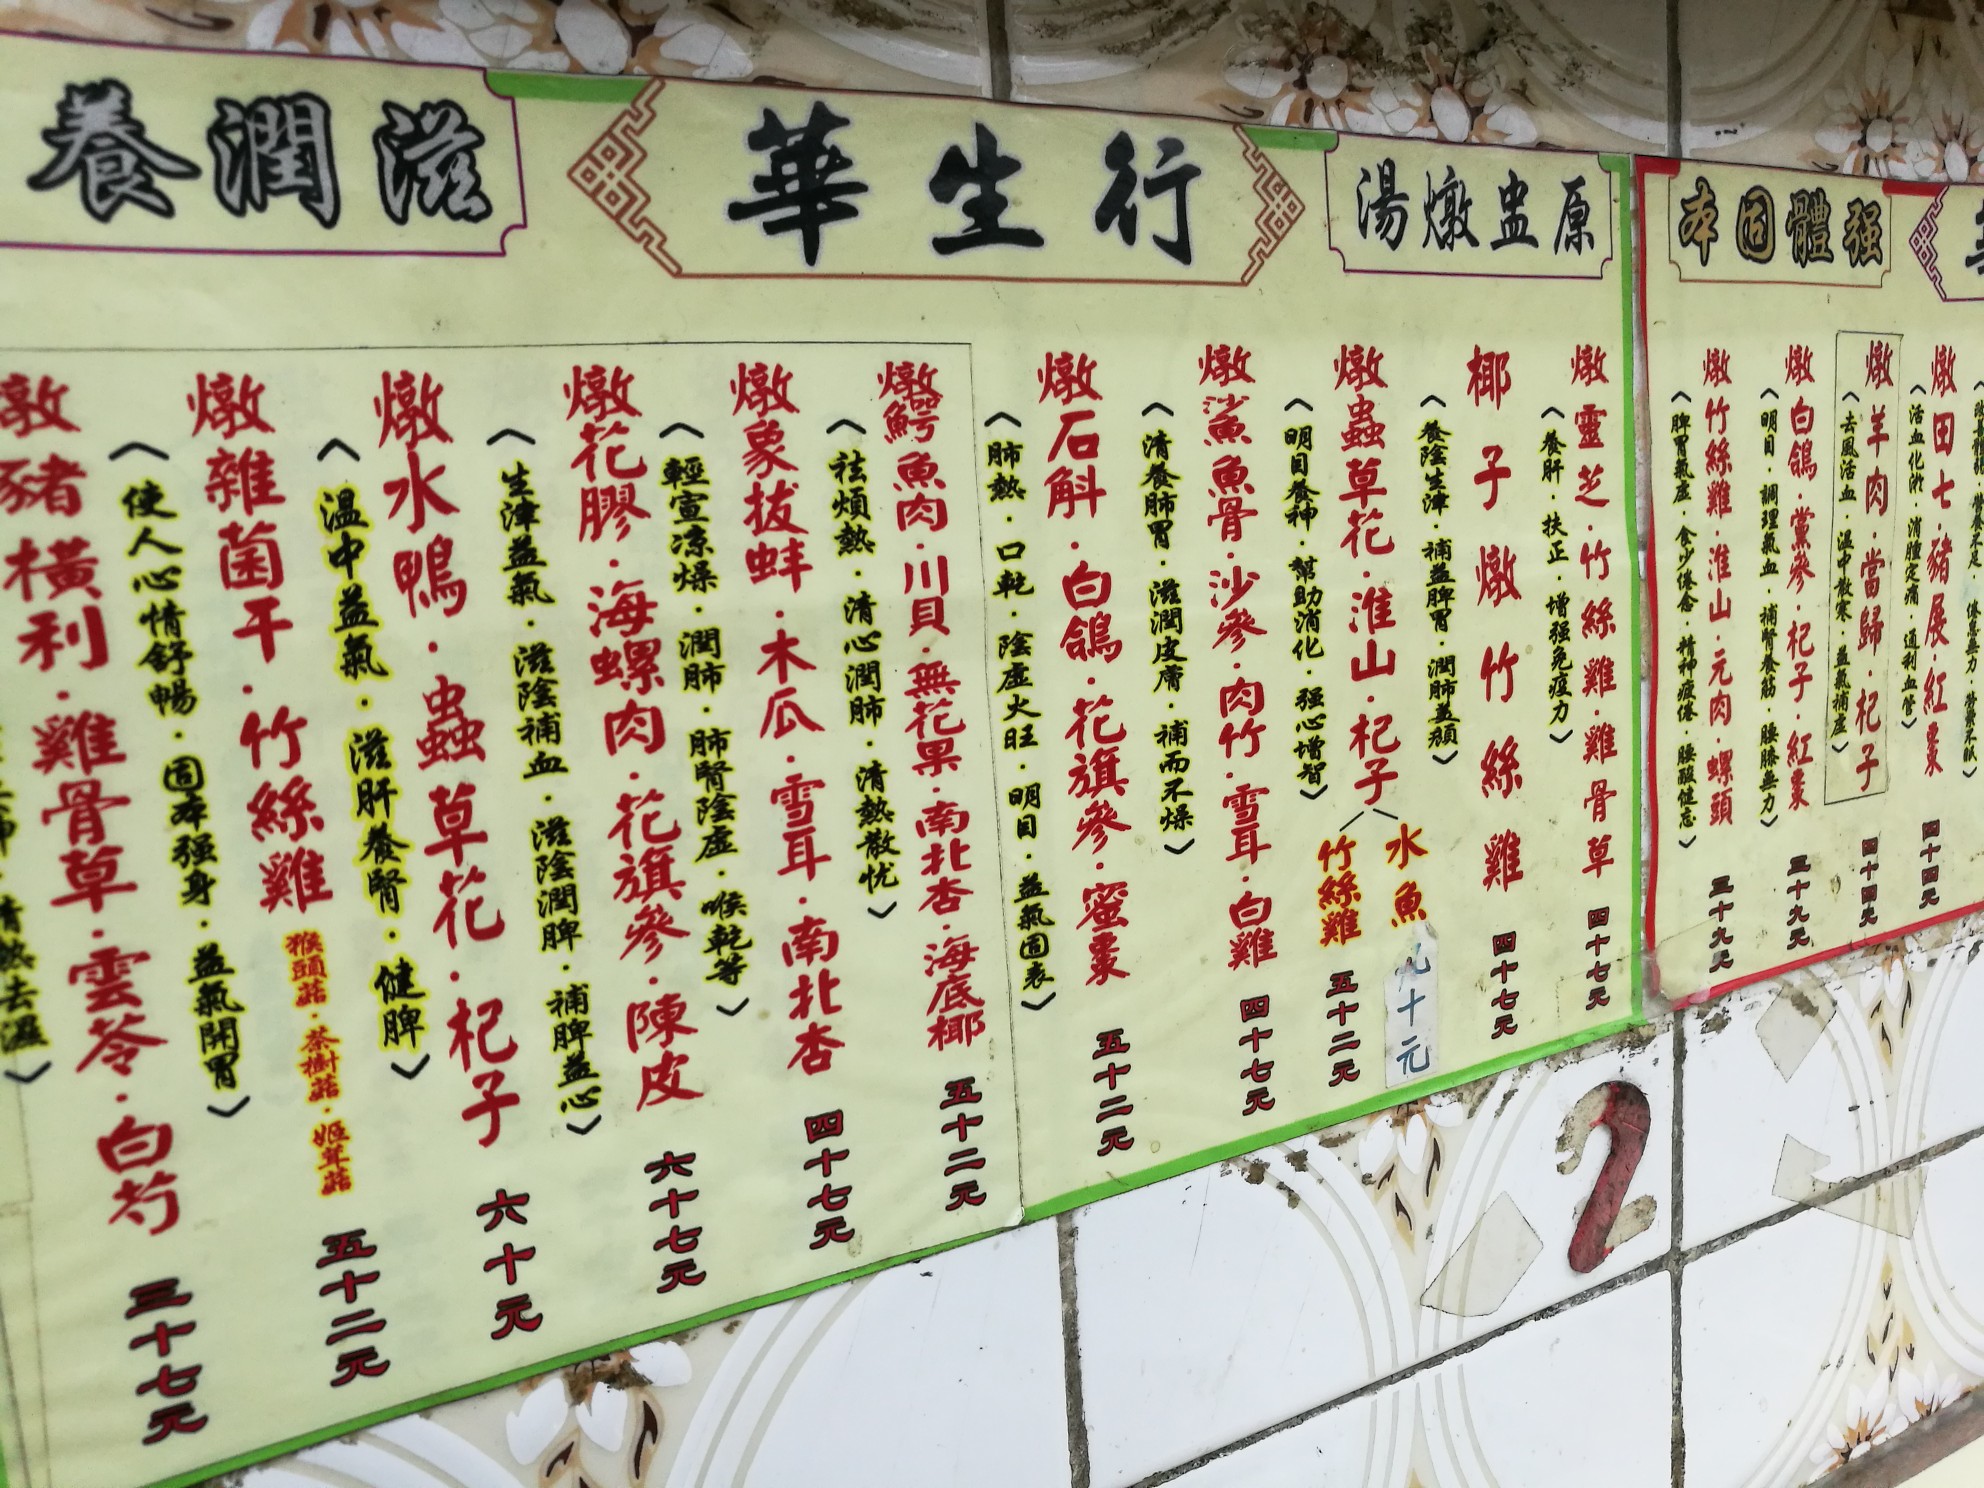 强體固本
燉田七·豬展·紅棗
四十四元
（活血化淤·消腫定痛·通利血管）
燉羊肉·當歸·杞子
四十四元
（去風活血·溫中散寒·益氣補虛）
燉白鴿·黨參·杞子·紅棗
三十九元
（明目·調理氣血·補腎養筋·腰膝無力）
燉竹絲雞·淮山·元肉·螺頭
三十九元
（脾胃氣虛·食少倦怠·精神疲倦·腰酸健忘）
原盅燉湯
華生行
滋潤養
燉靈芝·竹絲雞·雞骨草
四十七元
（養肝·扶正·增强免疫力）
椰子燉竹絲雞
四十七元
（養陰生津·補益脾胃·潤肺益顏）
燉蟲草花·淮山·杞子
水魚
九十元
竹絲雞
五十二元
（明目養神·幫助消化·强心增智）
燉鯊魚骨·沙參·肉竹·雪耳·白雞
四十七元
（清養肺胃·滋潤皮膚·補而不燥）
燉石斛·白鴿·花旗參·蜜棗
五十二元
（肺熱·口乾·陰虛火旺·明目·益氣固表）
燉鱷魚肉·川貝·無花果·南北杏·海底椰
五十二元
（祛煩熱·清心潤肺·清熱散忧）
燉象拔蚌·木瓜·雪耳·南北杏
四十七元
（輕宣凉燥·潤肺·肺腎陰虛·喉乾等）
燉花膠·海螺肉·花旗參·陳皮
六十七元
（生津益氣·滋陰補血·滋陰潤脾·補脾益心）
燉水鴨·蟲草花·杞子
六十元
（溫中益氣·滋肝養腎·健脾）
燉雜菌干·竹絲雞
猴頭菇·茶樹菇·姬茸菇
五十二元
（使人心情舒暢·固本强身·益氣開胃）
燉豬橫利·雞骨草·雲苓·白芍
三十七元
清熱去濕）
2